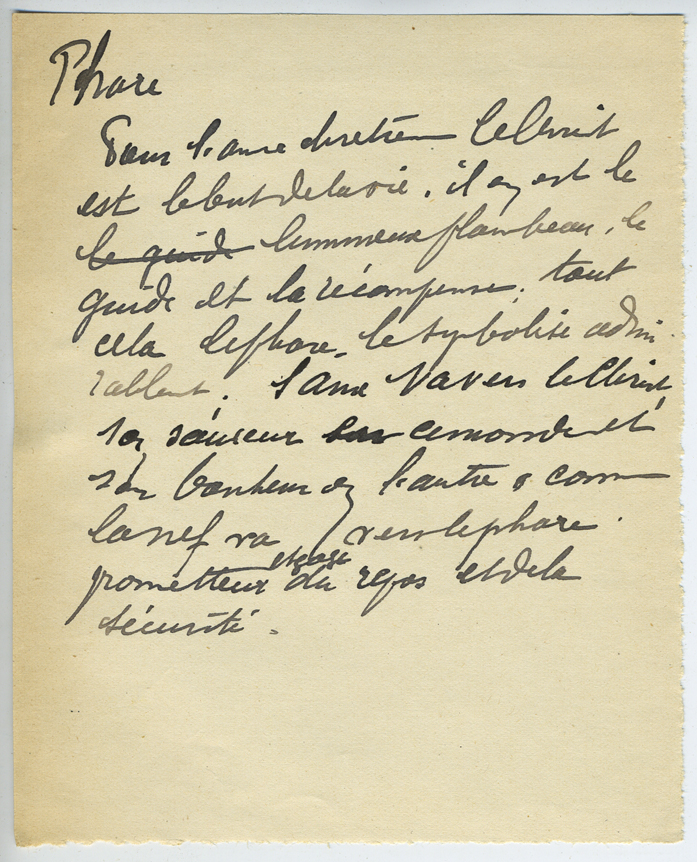 Phare
Pour l'ame chretienne le Christ
est le but de la vie, il en est le
le guide lumineux flambeau, le
guide et la récompense, tout
cela le phare le symbolise admi
rablent. L'ame va vers le Christ,
son sauveur en ce monde et
son bonheur en l'autre comme
la nef va vers le phare
prometteur du repos et de la
sécurité.